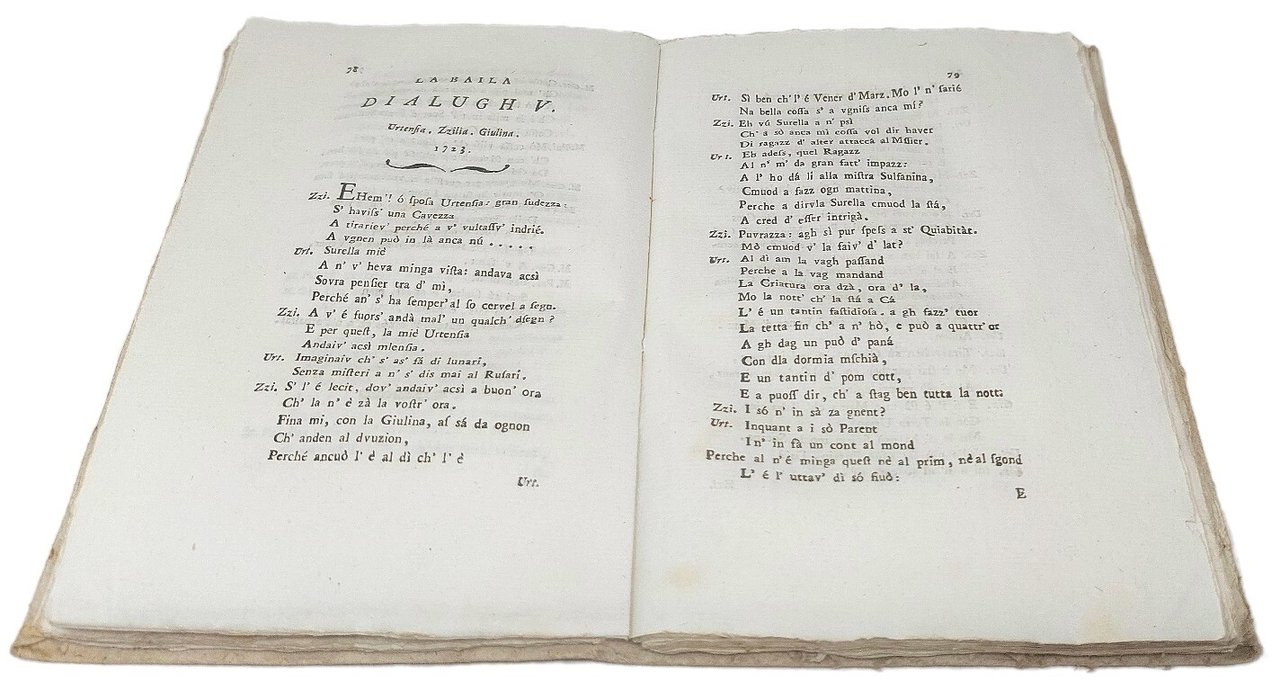 78
LA BAILA
DIALUGH V.
Urtensia. Zzilia. Giulina.
1723.
Zzi. EHem'! ó sposa Urtensia: gran sudezza:
S' haviss' una Cavezza
A tirariev' perché a v' vultassv' indrié.
A vgnen può in là anca nú . . . . .
Urt. Surella miè
A n' v' heva minga vista: andava acsì
Sovra pensier tra d' mì,
Perché an' s' ha semper' al so cervel a segn.
Zzi. A v' é fuors' andà mal' un qualch' dsegn?
E per quest, la miè Urtensia
Andaiv' acsì mlensia.
Urt. Imaginaiv ch' s' as' fá di lunarî,
Senza misteri a n' s' dis mai al Rusarî.
Zzi. S' l' é lecit, dov' andaiv' acsì a buon' ora
Ch' la n' è zà la vostr' ora.
Fina mi, con la Giulina, as sá da ognon
Ch' anden al dvuzion,
Perché ancuò l' è al dì ch' l' è
Urt.
79
Urt. Sì ben ch' l' é Vener d' Marz. Mo l' n' sarié
Na bella cossa s' a vgniss anca mí?
Zzi. Eh vú Surella a n' psì
Ch' a sò anca mì cossa vol dir haver
Di ragazz d' alter attaccà al Mssier.
Urt. Eh adess, quel Ragazz
Al n' m' da gran fatt' impazz:
A l' ho dá lì alla mistra Sulfanina,
Cmuod a fazz ogn mattina,
Perche a dirvla Surella cmuod la stá,
A cred d' esser intrigà.
Zzi. Puvrazza: agh sì pur spess a st' Quiabitàt.
Mò cmuod v' la faiv' d' lat?
Urt. Al dì am la vagh passand
Perche a la vag mandand
La Criatura ora dzà, ora d' la,
Mo la nott' ch' la stá a Cá
L' é un tantin fastidiosa. a gh fazz' tuor
La tetta fin ch' a n' hò, e può a quattr' or
A gh dag un può d' paná
Con dla dormia mschià,
E un tantin d' pom cott,
E a puoss dir, ch' a stag ben tutta la nott:
Zzi. I só n' in sà za gnent?
Urt. Inquant a i sò Parent
In' in fà un cont al mond
Perche al n' é minga quest nè al prim, nè al sgond
L' é l' uttav' dì só fiuò:
E